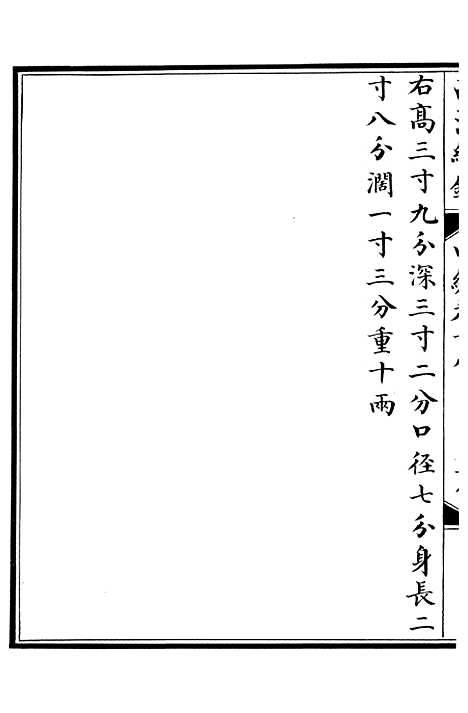 右髙三寸九分深三寸二分口徑七分身長二
寸八分濶一寸三分重十兩